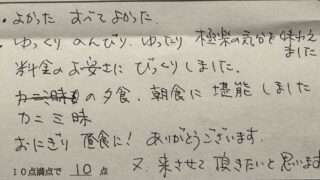 ・よかった すべてよかった.
・ゆっくり のんびり. ゆったり 極楽の気分を味わえ
ました
料金のお安さに びっくりしました.
の夕食、朝食に 堪能しました
カニ三昧
おにぎり 昼食に! ありがとうございます.
10点満点で 10 点 又.来させて頂きたいと思います